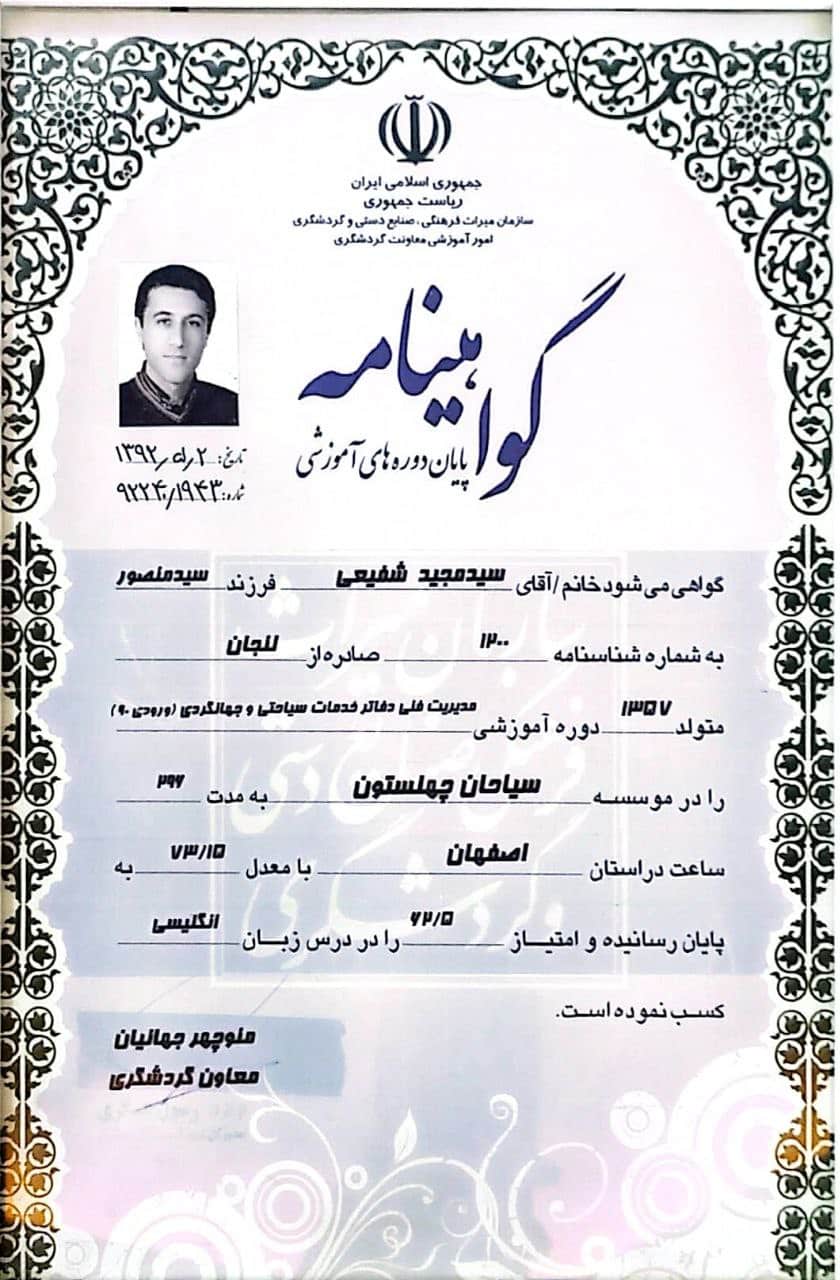 جمهوری اسلامی ایران
ریاست جمهوری
سازمان میراث فرهنگی، صنایع دستی و گردشگری
امور آموزشی معاونت گردشگری
گواهینامه
پایان دوره های آموزشی
تاریخ: ۱۳۹۲٫۵٫۲
شماره: ۹۲۲۴۰٫۱۹۴۳
گواهی می شود خانم / آقای سیدمجید شفیعی فرزند سیدمنصور
به شماره شناسنامه ۱۲۰۰ صادره از لنجان
متولد ۱۳۵۷ دوره آموزشی مدیریت فنی دفاتر خدمات سیاحتی و جهانگردی (ورودی ۹۰)
را در موسسه سیاحان چهلستون به مدت ۲۹۶
ساعت در استان اصفهان با معدل ۷۳/۱۵ به
پایان رسانیده و امتیاز ۶۲/۵ را در درس زبان انگلیسی
کسب نموده است.
منوچهر جهانیان
معاون گردشگری